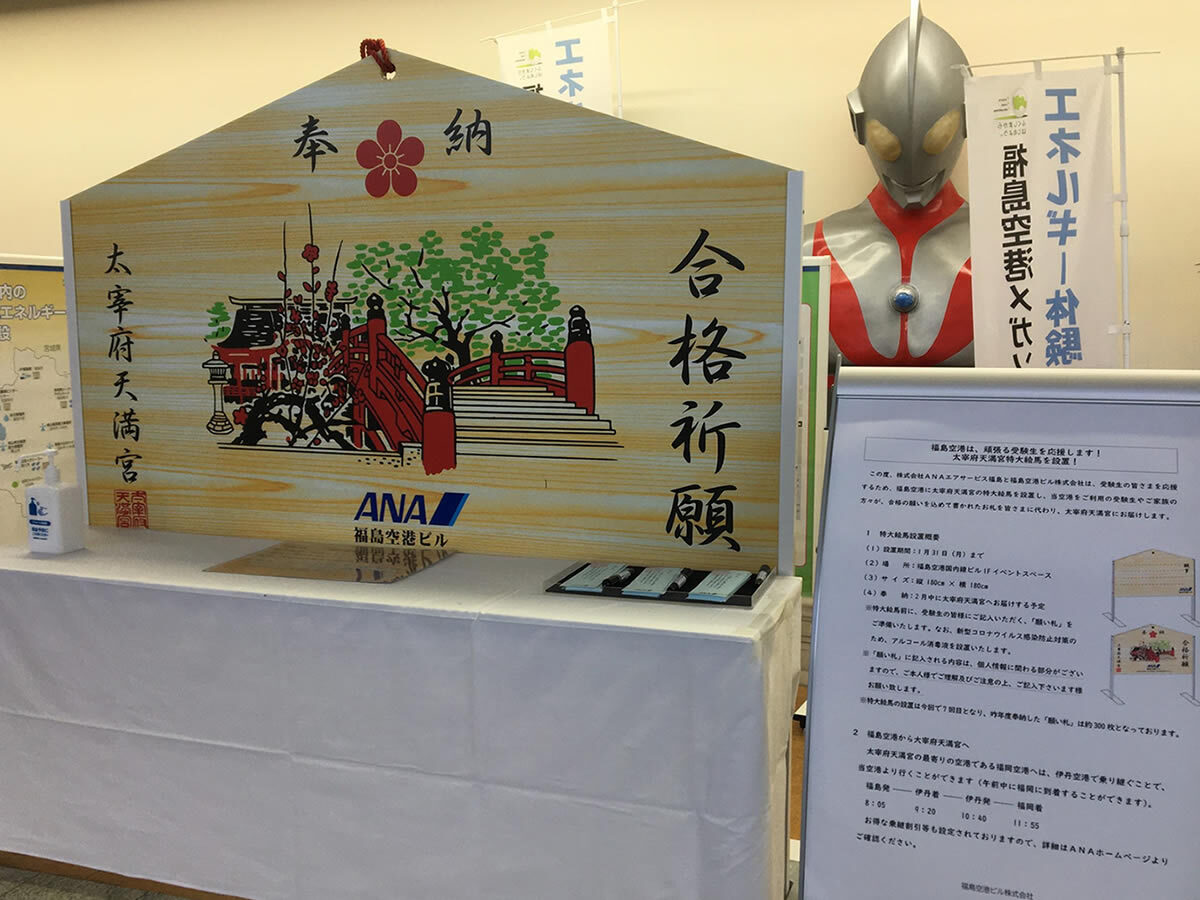 奉 納
合格祈願
太宰府天満宮
太宰府
天満宮
ANA
福島空港ビル
エネ
ふくしまから
はじめよう。
エネルギー体験
福島空港メガソ
内の
エネルギー
設
宮城県
福島空港は、頑張る受験生を応援します！
太宰府天満宮特大絵馬を設置！
この度、株式会社ANAエアサービス福島と福島空港ビル株式会社は、受験生の皆さまを応援
するため、福島空港に太宰府天満宮の特大絵馬を設置し、当空港をご利用の受験生やご家族の
方々が、合格の願いを込めて書かれたお札を皆さまに代わり、太宰府天満宮にお届けします。
1 特大絵馬設置概要
(1) 設置期間：1月31日（月）まで
(2) 場　所：福島空港国内線ビル1Fイベントスペース
(3) サイズ：縦 180cm × 横 180cm
(4) 奉　納：2月中に太宰府天満宮へお届けする予定
※特大絵馬前に、受験生の皆様にご記入いただく、「願い札」を
ご準備いたします。なお、新型コロナウイルス感染防止対策の
ため、アルコール消毒液を設置いたします。
※「願い札」に記入される内容は、個人情報に関わる部分がござい
ますので、ご本人様でご理解及びご注意の上、ご記入下さいます様
お願い致します。
※特大絵馬の設置は今回で7回目となり、昨年度奉納した「願い札」は約300枚となっております。
2 福島空港から太宰府天満宮へ
太宰府天満宮の最寄りの空港である福岡空港へは、伊丹空港で乗り継ぐことで、
当空港より行くことができます（午前中に福岡に到着することができます）。
福島発 ―― 伊丹着 ―― 伊丹発 ―― 福岡着
8：05 9：20 10：40 11：55
お得な乗継割引等も設定されておりますので、詳細はANAホームページより
ご確認ください。
福島空港ビル株式会社
奉 納
合格祈願
ANA